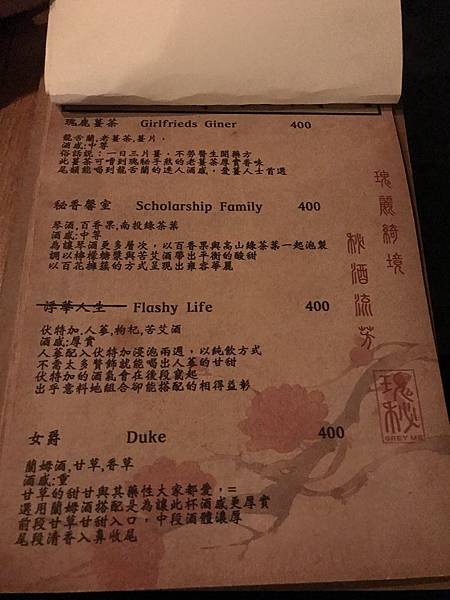 瑰鹿薑茶 Girlfrieds Giner 400
龍舌蘭,老薑茶,薑片,
酒感:中等
俗話說：一日三片薑，不勞醫生開藥方
此薑茶可嚐到瑰秘手熬的老薑茶厚實香味
尾韻能喝到龍舌蘭的迷人酒感，愛薑人士首選
秘香馨室 Scholarship Family 400
琴酒,百香果,南投綠茶葉
酒感:中等
為讓琴酒更多層次，以百香果與高山綠茶葉一起泡製
調以檸檬糖漿與苦艾酒帶出平衡的酸甜
以百花擁簇的方式呈現出雍容華麗
浮華人生 Flashy Life 400
伏特加,人蔘,枸杞,苦艾酒
酒感:厚實
人蔘配入伏特加浸泡兩週，以純飲方式
不需太多贅飾就能喝出人蔘的甘甜
伏特加的酒氣會在後段竄起
出乎意料地組合卻能搭配的相得益彰
女爵 Duke 400
蘭姆酒,甘草,香草
酒感:重
甘草的甜甘與其藥性大家都愛，=
選用蘭姆酒搭配是為讓此杯酒感更厚實
前段甘草甘甜入口，中段酒體濃厚
尾段清香入鼻收尾
瑰麗綺境
秘酒流芳
瑰秘
GREY ME